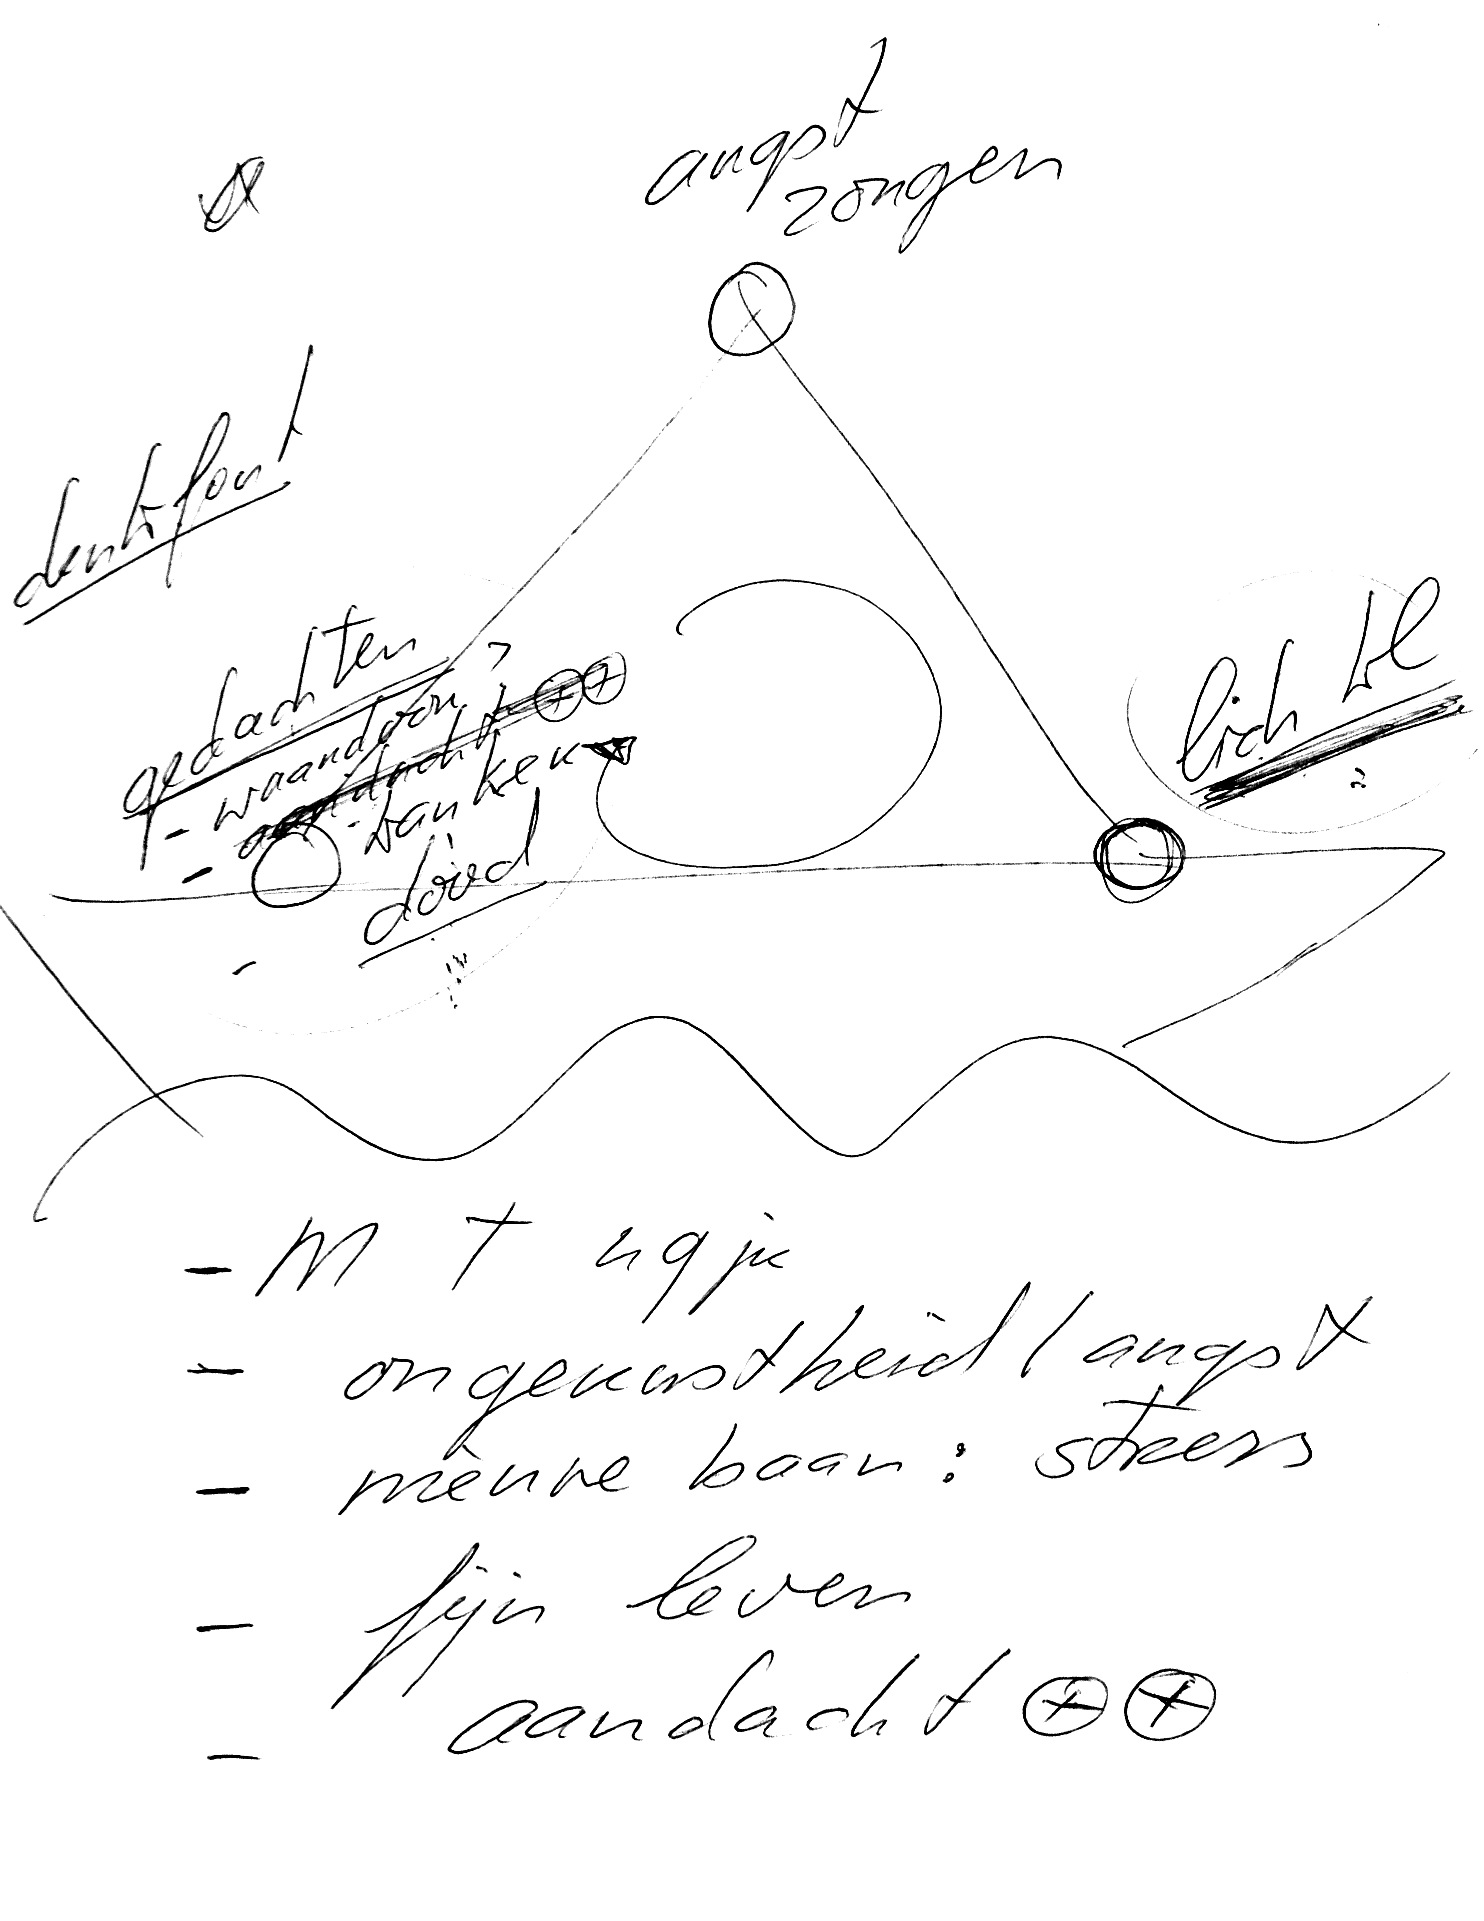 angst
zorgen
denkfout
gedachten
- waardoor?
- aandacht ⊕⊕
- kanker
dood
lich kl
?
- M † ngju
- ongerustheid / angst
- nieuwe baan: stress
- fijn leven
- aandacht ⊕ ⊕